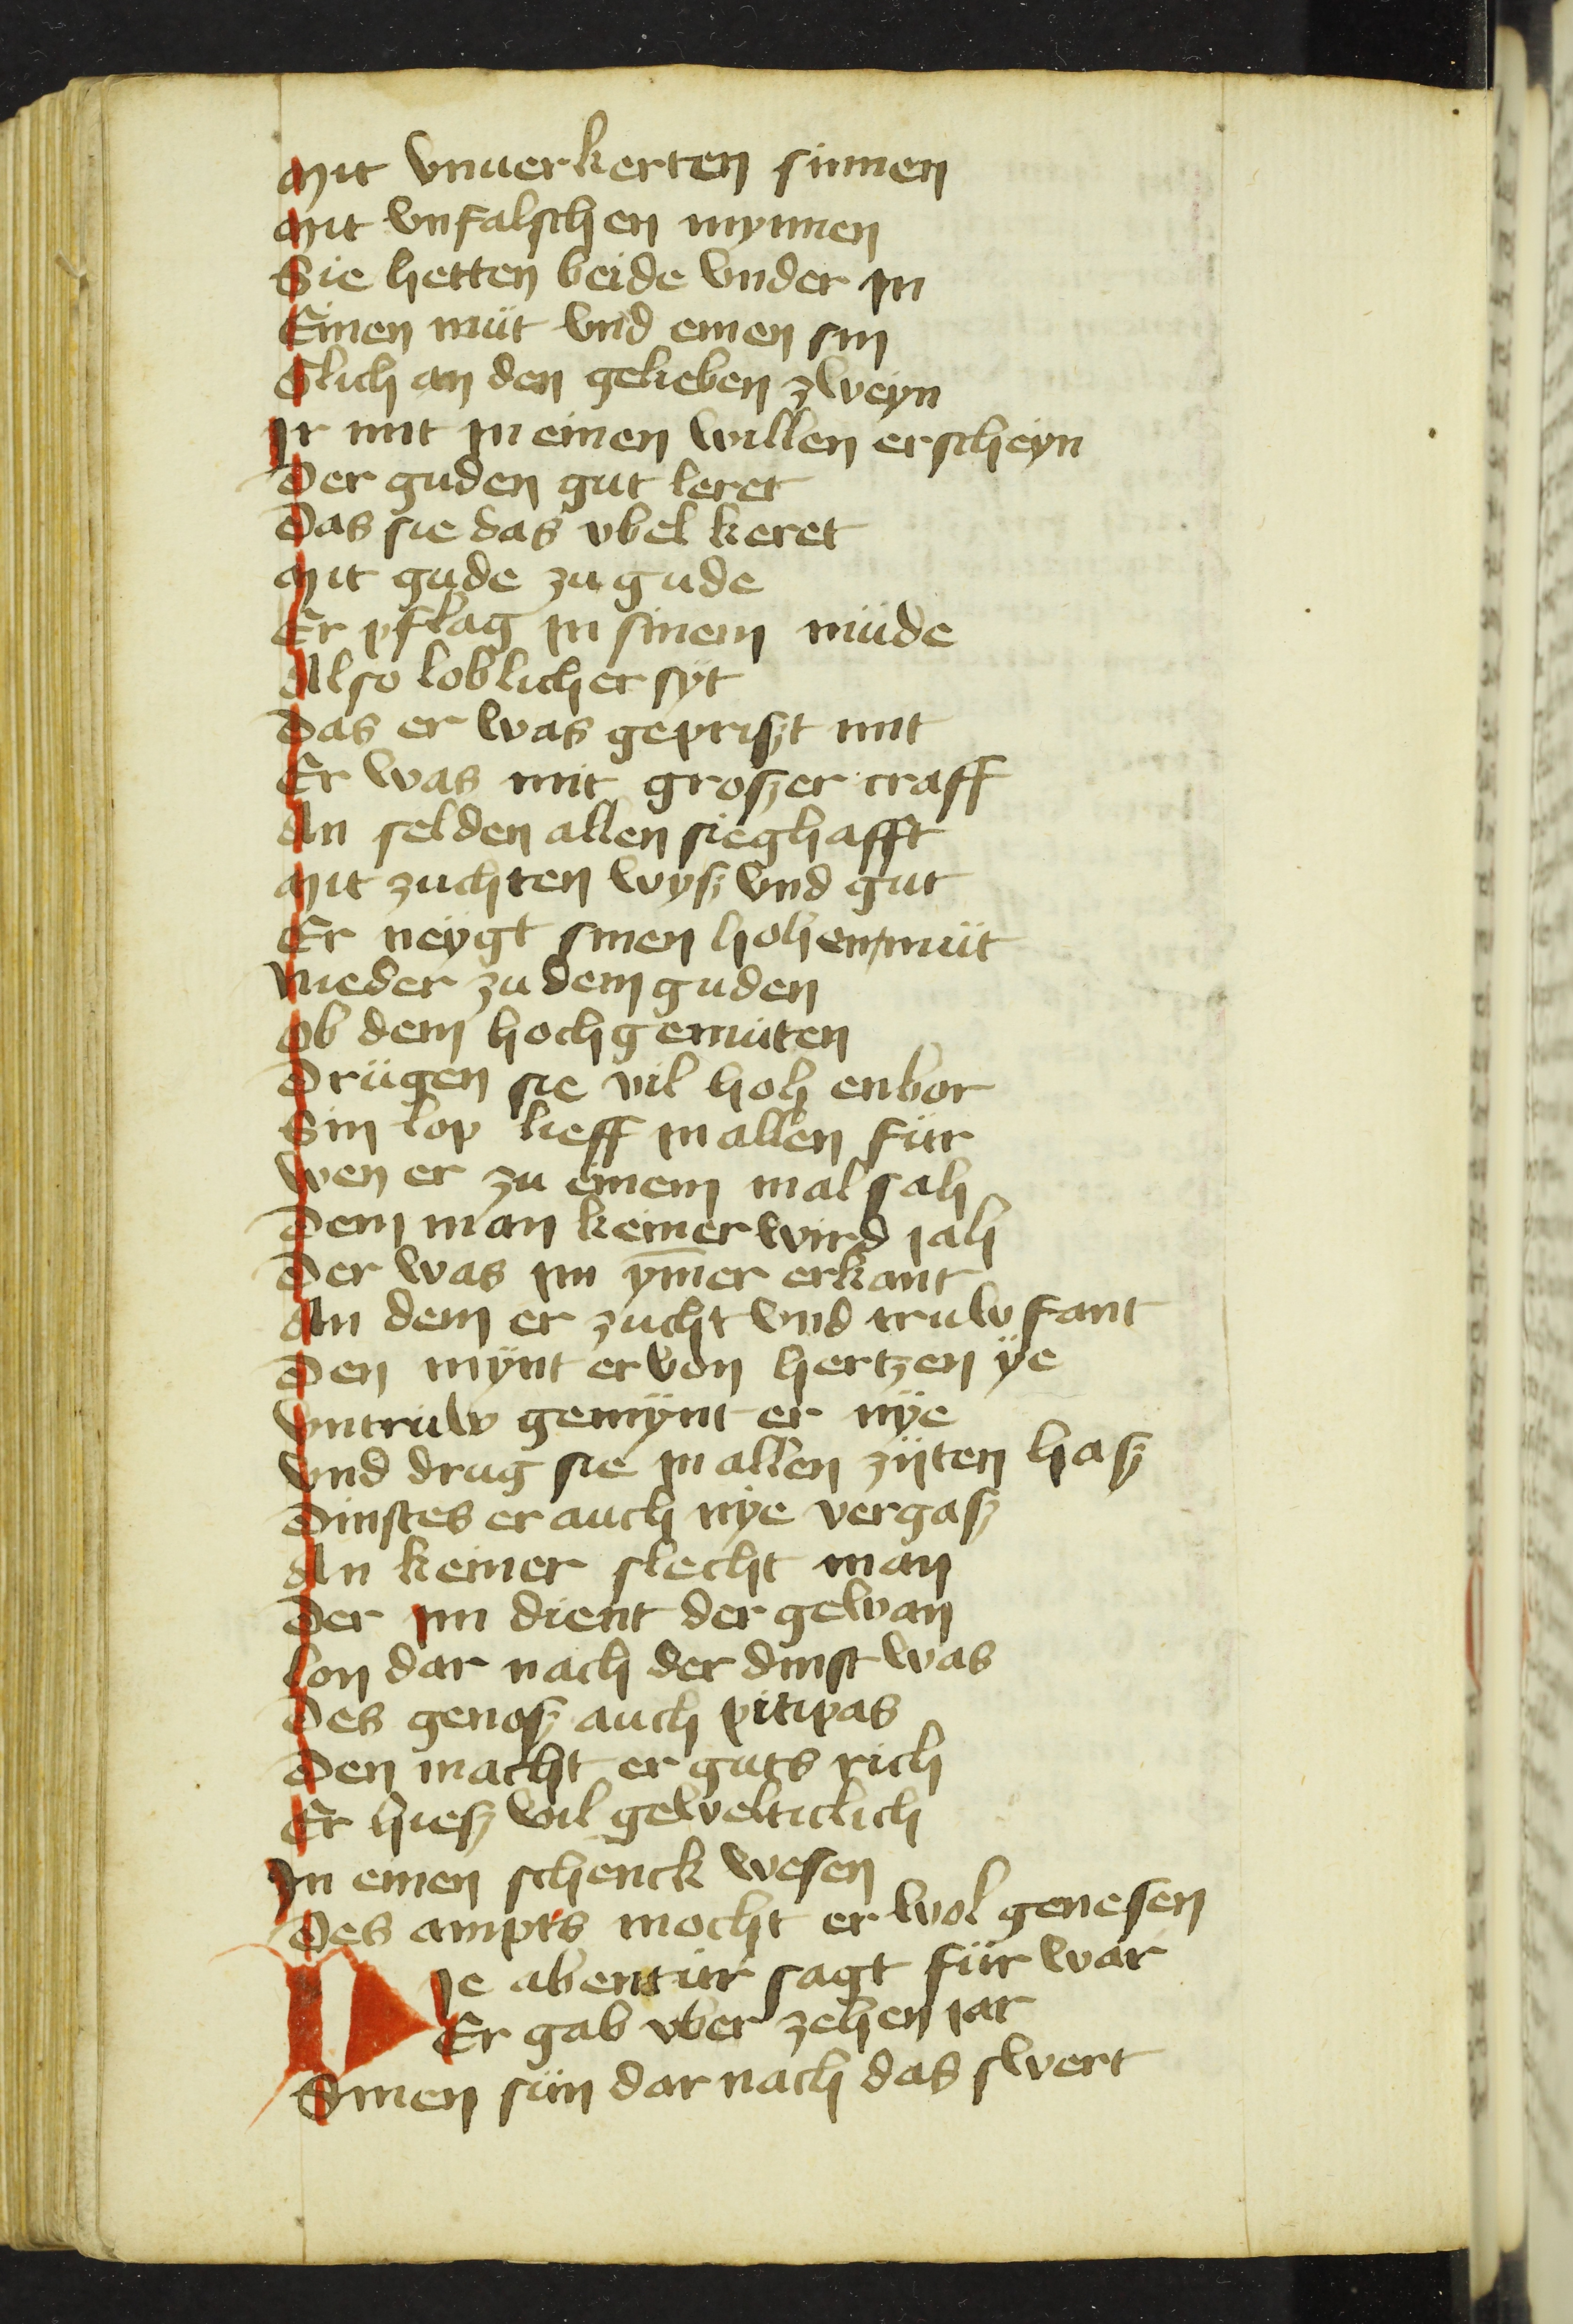 Mit vnuerkerten sinnen
Mit vnfalschen mynnen
Sie hetten beide vnder in
Einen müt vnd einen sin
Glich an den gelieben zweyn
Ir mut in einen willen erscheyn
Der guden gut leret
Das sie das vbel keret
Mit gude zu gude
Er pflag in sinem müde
Also loblicher syt
Das er was geprißt mit
Er was mit großer craff
An selden allen sieghafft
Mit zuchten wyß vnd gut
Er neÿgt sinen hohen müt
Nieder zu dem guden
Ob dem hochgemuten
Drügen sie vil hoh enbor
Sin lop lieff in allen für
Wen er zu einem mal sah
Dem man keiner wird jah
Der was im ym̅er erkant
An dem er zucht vnd truw fant
Den mÿnt er von hertzen ÿe
Vntruw gemÿnt er nÿe
Vnd drug sie in allen zijten haß
Dinstes er auch nÿe vergaß
An keiner slecht man
Der im dient der gewan
Lon dar nach der dinst was
Des genoß auch pitipas
Den macht er guts rich
Er hieß wil gewelticlich
In einen schenck wesen
Des ampts mocht er wol genesen
Die abentür sagt für war
Er gab vber zehen jar
Sinen sün dar nach das swert